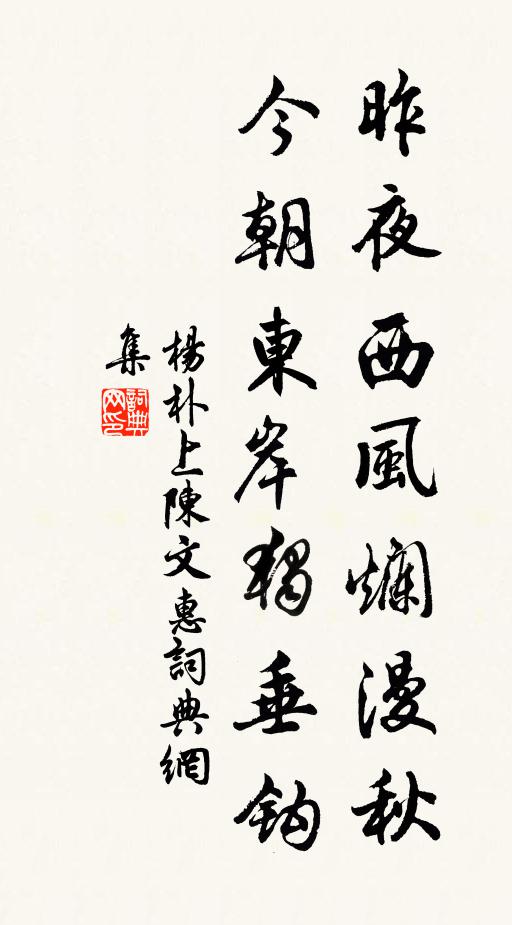 昨夜西風爛漫秋
今朝東岸獨垂鈎
楊朴上陳文惠詞典網
集
詞典
网印